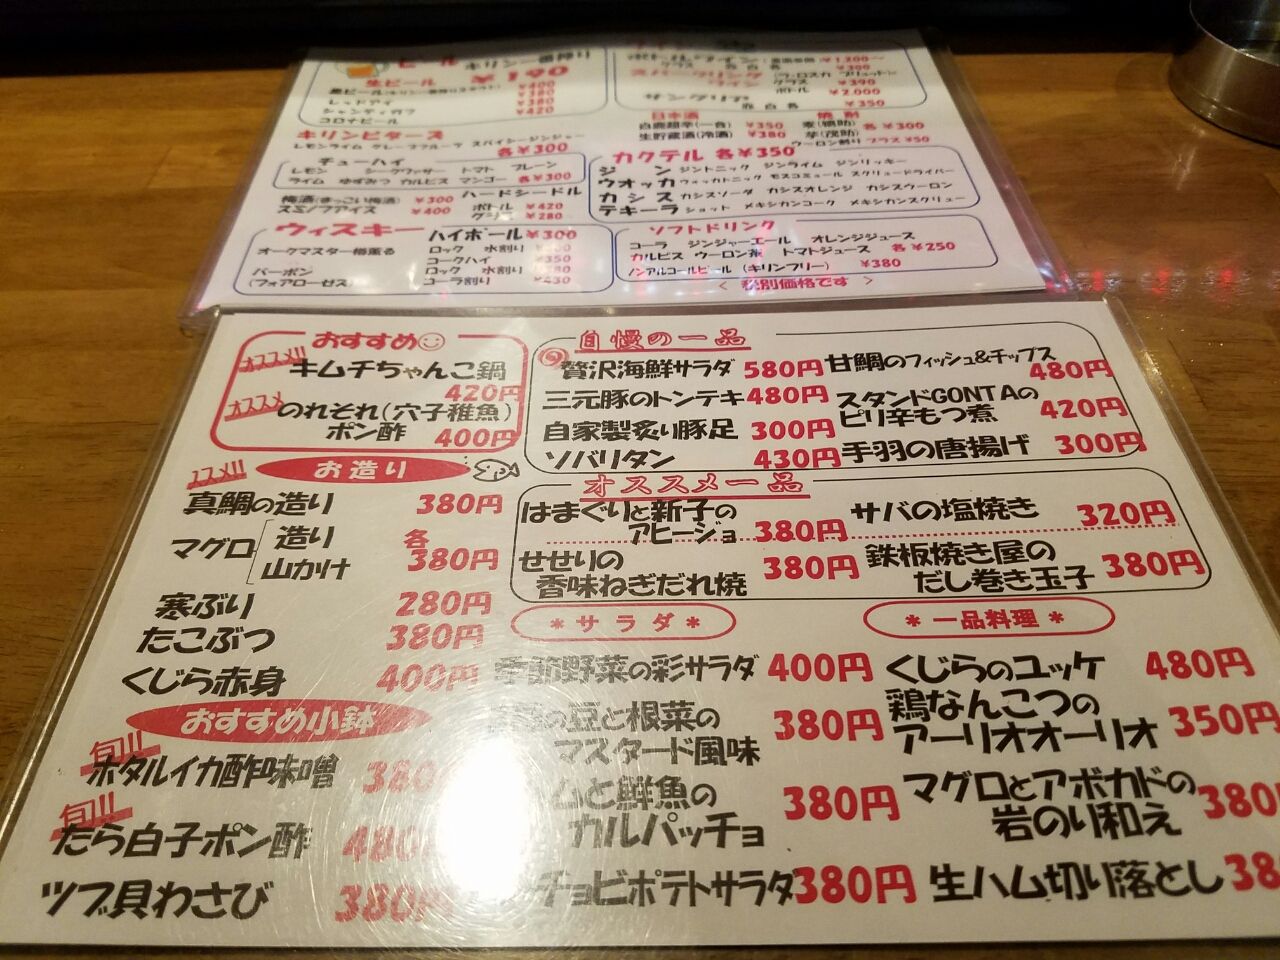 ビール キリン一番搾り
生ビール ¥190
¥400
¥380
レッドアイ ¥380
シャンディガフ ¥420
コロナビール
ボトルワイン ¥1200〜
グラス 赤 白 各 ¥300
スパークリングワイン
グラス ¥390
ボトル ¥2,000
サングリア 赤 白 各 ¥350
キリンビターズ
レモンライム グレープフルーツ スパイシージンジャー
各¥300
日本酒 焼酎
¥350
生貯蔵酒(冷酒) ¥380
各 ¥300
ウーロン割り プラス ¥50
チューハイ
レモン シークヮーサー トマト プレーン
ライム ゆずみつ カルピス マンゴー 各¥300
カクテル 各¥350
ジン ジントニック ジンライム ジンリッキー
ウオッカ ウォッカトニック モスコミュール スクリュードライバー
カシス カシスソーダ カシスオレンジ カシスウーロン
テキーラ ショット メキシカンコーク メキシカンスクリュー
梅酒 ¥300 ハードシードル
スミノフアイス ¥400 ボトル ¥420
¥280
ウィスキー ハイボール¥300
オークマスター樽薫る ロック 水割り
コークハイ ¥350
バーボン ロック 水割り
(フォアローゼス) コーラ割り ¥430
ソフトドリンク
コーラ ジンジャーエール オレンジジュース
カルピス ウーロン茶 トマトジュース 各¥250
ノンアルコールビール (キリンフリー) ¥380
< 税別価格です >
おすすめ
オススメ!!
キムチちゃんこ鍋
420円
オススメ
のれそれ(穴子稚魚)
ポン酢 400円
お造り
真鯛の造り 380円
マグロ 造り 各
山かけ 380円
寒ぶり 280円
たこぶつ 380円
くじら赤身 400円
おすすめ小鉢
旬!!
ホタルイカ酢味噌
旬!!
たら白子ポン酢
ツブ貝わさび 380円
自慢の一品
贅沢海鮮サラダ 580円
三元豚のトンテキ 480円
自家製炙り豚足 300円
ソバリタン 430円
甘鯛のフィッシュ&チップス
480円
スタンドGONTAの
ピリ辛もつ煮 420円
手羽の唐揚げ 300円
オススメ一品
はまぐりと新子の
アヒージョ 380円
せせりの
香味ねぎだれ焼 380円
サバの塩焼き 320円
鉄板焼き屋の
だし巻き玉子 380円
*サラダ*
季節野菜の彩サラダ 400円
の豆と根菜の
マスタード風味 380円
ムと鮮魚の
カルパッチョ 380円
チョビポテトサラダ 380円
*一品料理*
くじらのユッケ 480円
鶏なんこつの
アーリオオーリオ 350円
マグロとアボカドの
岩のり和え 380
生ハム切り落とし 38